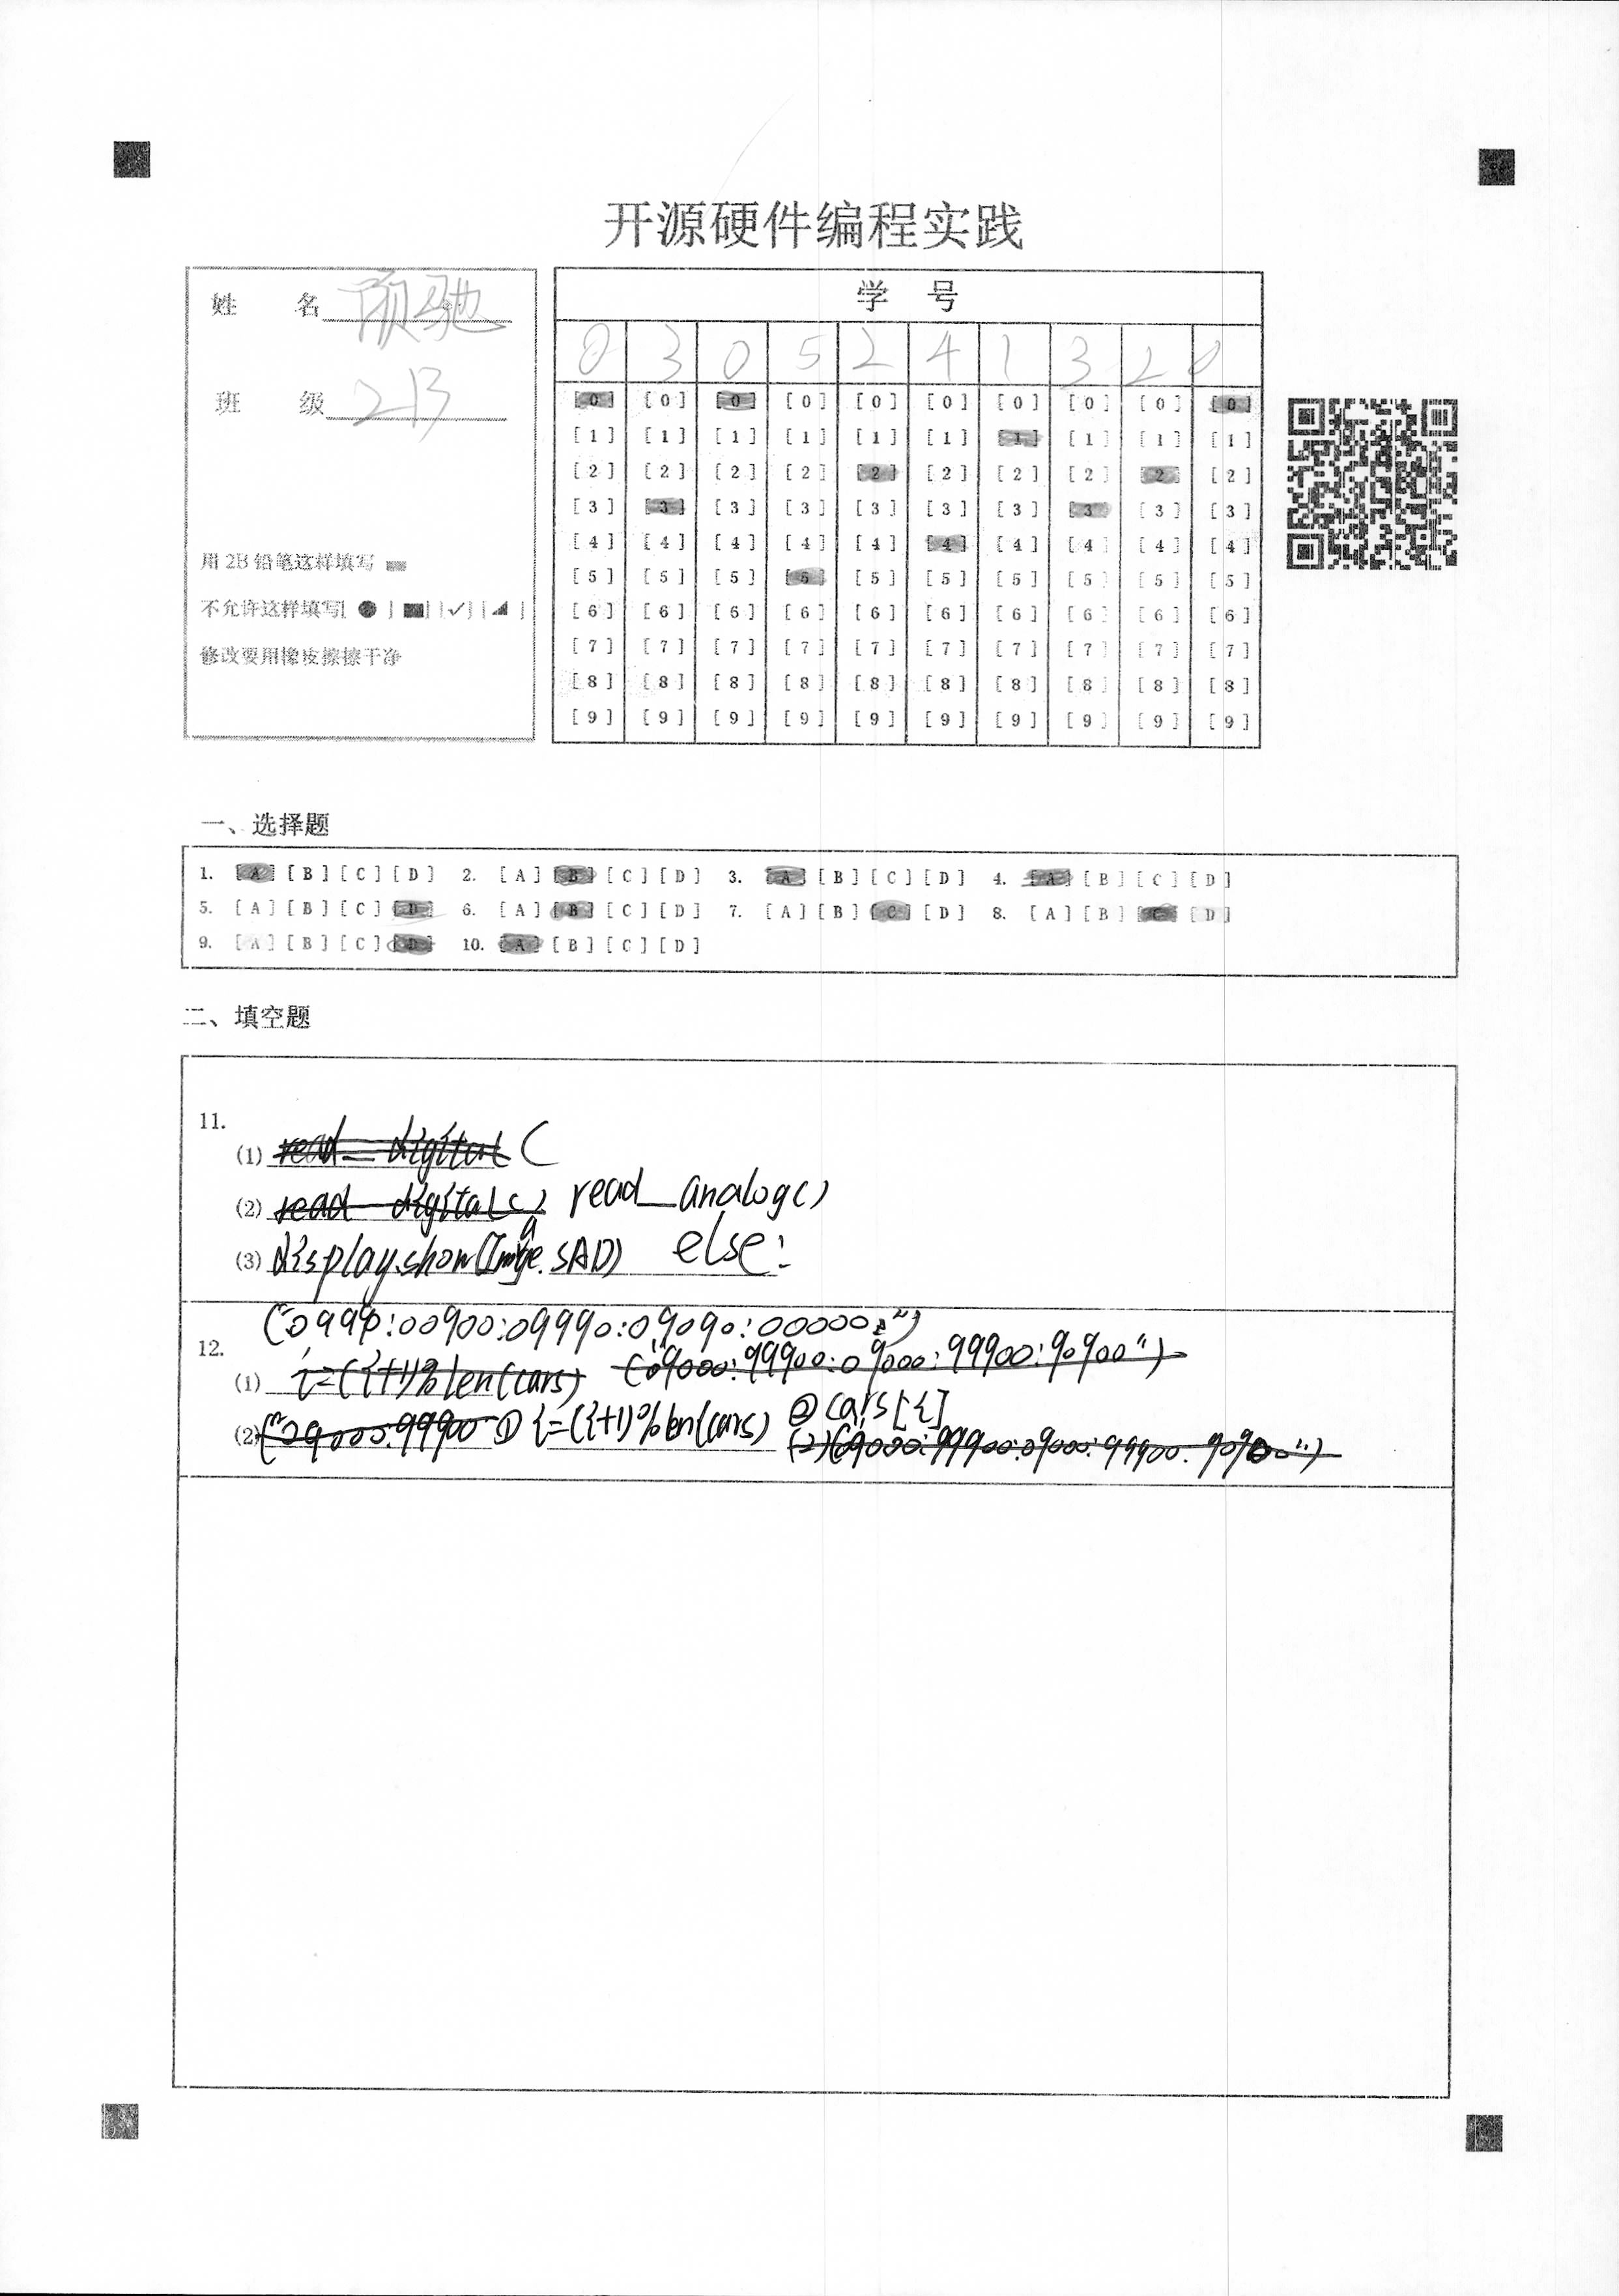 开源硬件编程实践
姓 名 顾驰
班 级 213
用 2B 铅笔这样填写
不允许这样填写[ ● ] [■] [✓] [◢ ]
修改要用橡皮擦擦干净
学 号
0 3 0 5 2 4 1 3 2 0
[0] [0] [0] [0] [0] [0] [0] [0] [0] [0]
[1] [1] [1] [1] [1] [1] [1] [1] [1] [1]
[2] [2] [2] [2] [2] [2] [2] [2] [2] [2]
[3] [3] [3] [3] [3] [3] [3] [3] [3] [3]
[4] [4] [4] [4] [4] [4] [4] [4] [4] [4]
[5] [5] [5] [5] [5] [5] [5] [5] [5] [5]
[6] [6] [6] [6] [6] [6] [6] [6] [6] [6]
[7] [7] [7] [7] [7] [7] [7] [7] [7] [7]
[8] [8] [8] [8] [8] [8] [8] [8] [8] [8]
[9] [9] [9] [9] [9] [9] [9] [9] [9] [9]
一、选择题
1. [A] [B] [C] [D] 2. [A] [B] [C] [D] 3. [A] [B] [C] [D] 4. [A] [B] [C] [D]
5. [A] [B] [C] [D] 6. [A] [B] [C] [D] 7. [A] [B] [C] [D] 8. [A] [B] [C] [D]
9. [A] [B] [C] [D] 10. [A] [B] [C] [D]
二、填空题
11.
(1) read_digital C
(2) read digital() read_analog()
(3) display.show(Image.SAD) else:
("09990:00900:09990:09090:00000:")
12.
(1) i=(i+1)%len(cars) ("09000:99900:09000:99900:90900")
(2) ("09000:99900 ① i=(i+1)%len(cars) ② cars[i]
(2)("09000:99900:09000:99900:90900")